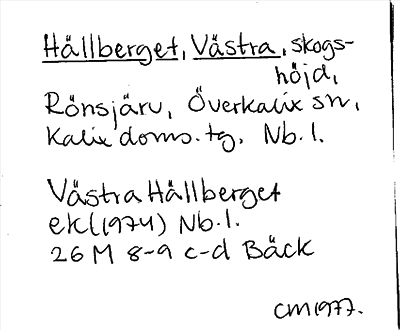 Hällberget, Västra, skogs-
höjd,
Rönsjärv, Överkalix sn,
Kalix doms.tg. Nb.l.
Västra Hällberget
ekl(1974) Nb.l.
26 M 8-9 c-d Bäck
CM1977.